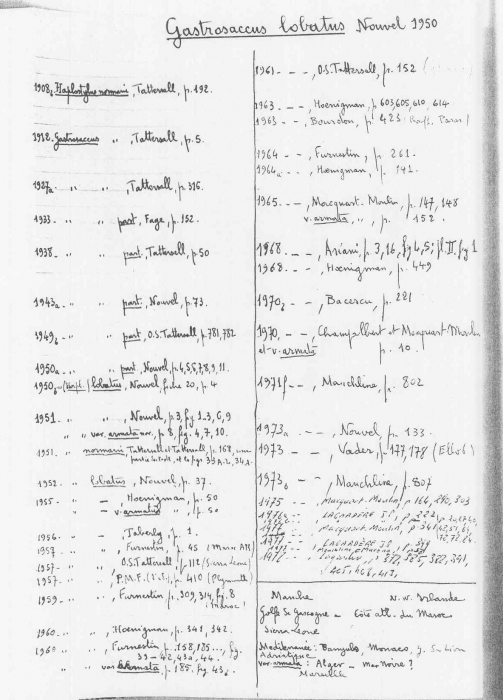 Gastrosaccus lobatus Nouvel 1950
1908b Haplostylus normani, Tattersall, p. 192.
1912. Gastrosaccus " , Tattersall, p. 5.
1927a " " , Tattersall, p. 316.
1933. " " part, Fage, p. 152.
1938 " " part, Tattersall, p. 50
1943a " " part, Nouvel, p. 73.
1949b " " part, O.S. Tattersall, p. 781, 782
1950a " " part, Nouvel, p. 4, 5, 6, 7, 8, 9, 11.
1950b - (Hapl.) lobatus, Nouvel, fiche 20, p. 4
1951 - " " , Nouvel, p. 3, fig 1-3, 6, 9
" " var. armata nov. p. 8, fig. 4, 7, 10.
1951. " normani, Tattersall et Tattersall, p. 168,
1952 " lobatus, Nouvel, p. 37.
1955 " - , Hoenigman, p. 50
- v. armata " , p. 50
1956 - " " , p. 1.
1957 " " , Furnestin, p. 45 (Maroc Atl)
1957 - " " , O.S. Tattersall, p. 112 (Sierra Leone)
1957 - " " , P.M.F. , p. 410 (Plymouth)
1959 - " " , Furnestin, p. 309, 314, fig. 8
(Maroc)
1960 - " " , Hoenigman, p. 341, 342.
1960 " " , Furnestin p. 158,
39-42, 43a, 44.
" " var. p. 185. fig 43
1961 - - , O.S. Tattersall, p. 152
1963 - - , Hoenigman, p. 603, 605, 610, 614
1963 - - , Bourdon, p. 423
1964 - - , Furnestin, p. 261.
1964a - - , Hoenigman, p. 141.
1965 - - , Macquart-Moulin, p. 147, 148
v. armata, " , p. 152.
1968 - - , Ariani, p. 3, 16, fig 4, 5; pl. II, fig 1
1968 - - , Hoenigman, p. 449
1970b - - , Bacescu, p. 221
1970 - - , Champalbert et Macquart-Moulin
et v. armata p. 10.
1971f - - , Mauchline, p. 802
1973a - - , Nouvel, p. 133.
1973 - - , Vader, p. 177, 178
1973b - - , Mauchline, p. 807
1975 - Macquart-Moulin, p. 166,
LAGARDÈRE J.P., p. 222
Macquart-Moulin, p. 341
1977 - LAGARDÈRE J.P.,
Manche N. W. Irlande
Golfe de Gascogne - Côte atl. du Maroc
Sierra Leone
Méditerranée: Banyuls, Monaco,
Adriatique
var. armata: Alger - Mer Noire?
Marseille